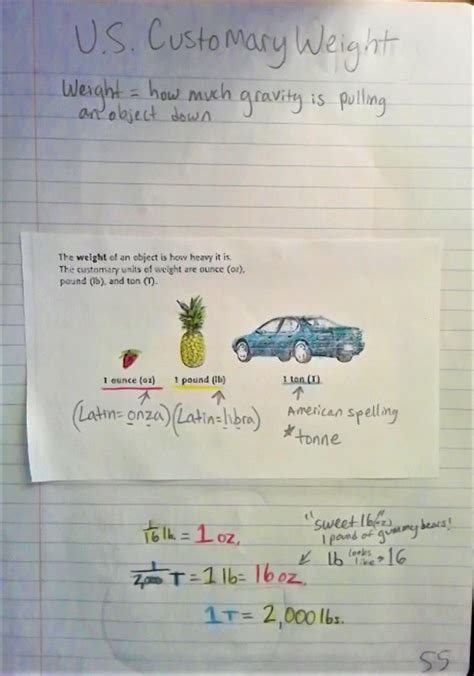 U.S. Customary Weight
Weight = how much gravity is pulling
an object down
The weight of an object is how heavy it is.
The customary units of weight are ounce (oz),
pound (lb), and ton (T).
1 ounce (oz) 1 pound (lb) 1 ton (T)
(Latin = onza) (Latin = libra) American spelling
* tonne
"sweet 16" (oz)
1 pound of gummy bears!
1/16 lb = 1 oz.
lb looks like → 16
1/2,000 T = 1 lb = 16 oz.
1T = 2,000 lbs.
55